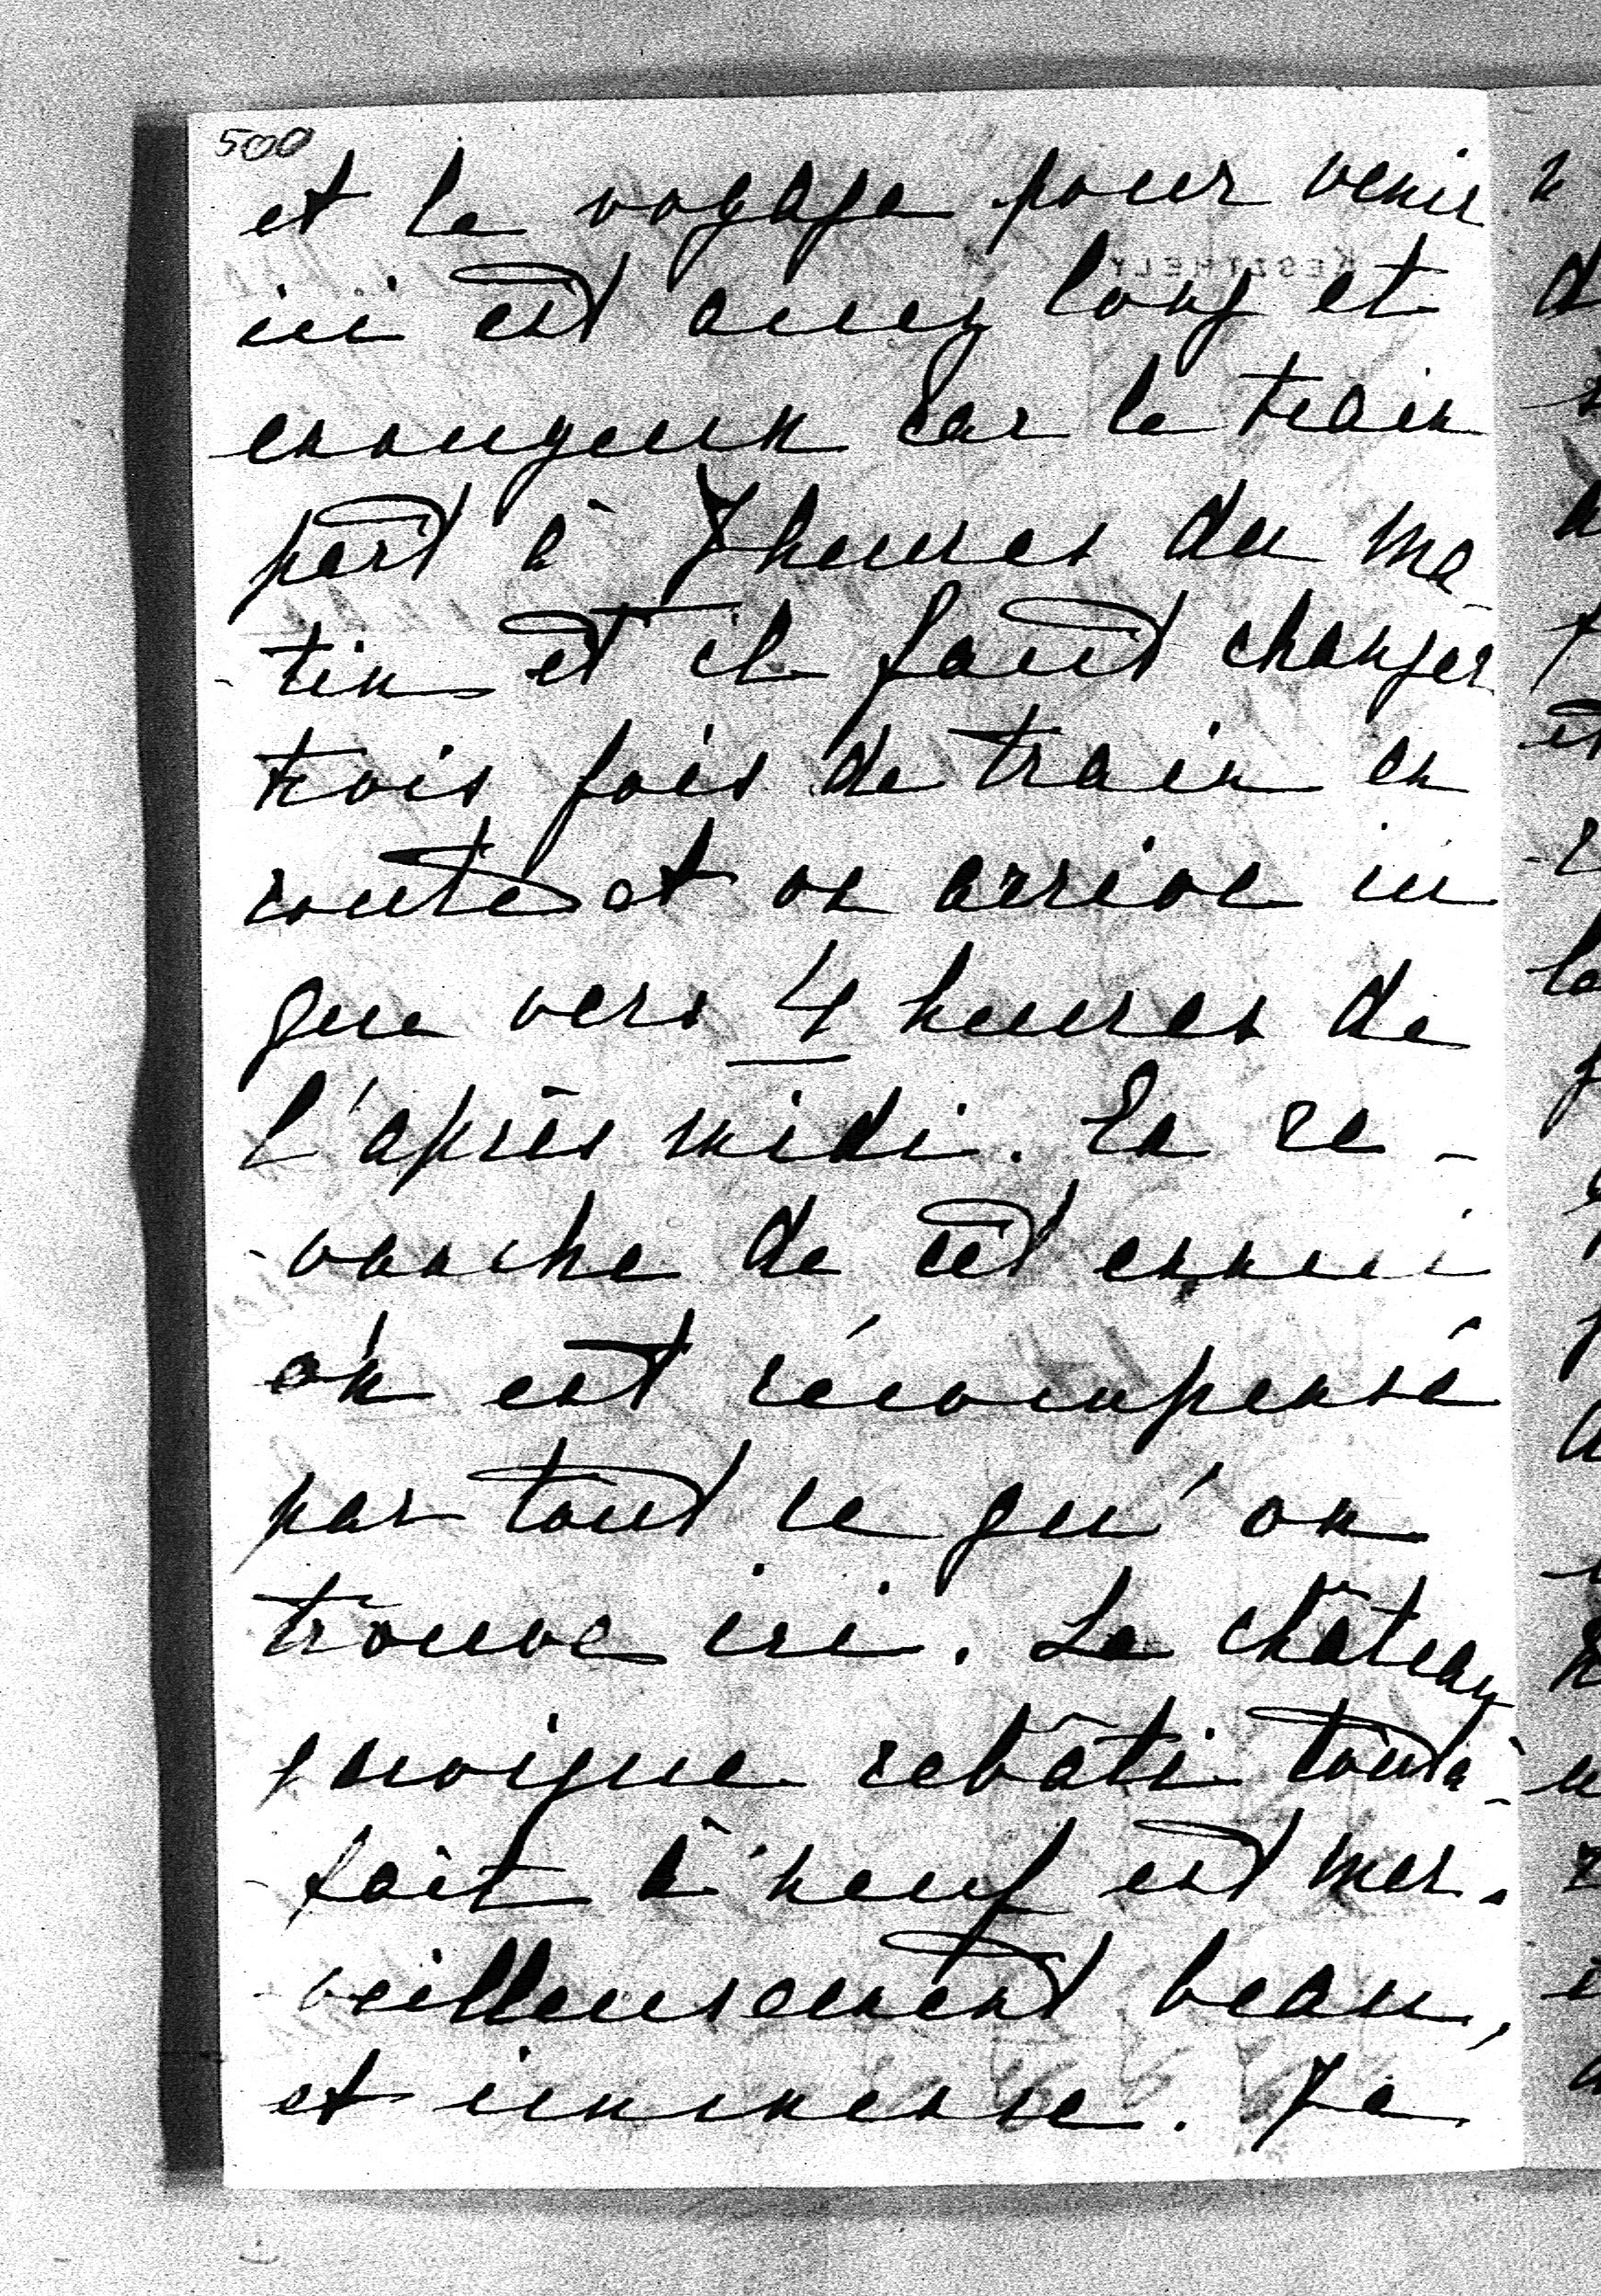 500
et le voyage pour venir
ici est assez long et
ennuyeux car le train
part à 7 heures du ma-
-tin et il faut changer
trois fois de train en
route et on arrive ici
que vers 4 heures de
l'après midi. En re-
-vanche de cet ennui
on est récompensé
par tout ce qu'on
trouve ici. Le château
quoique rebâti tout à-
-fait à neuf est mer-
-veilleusement beau,
et immense. Je